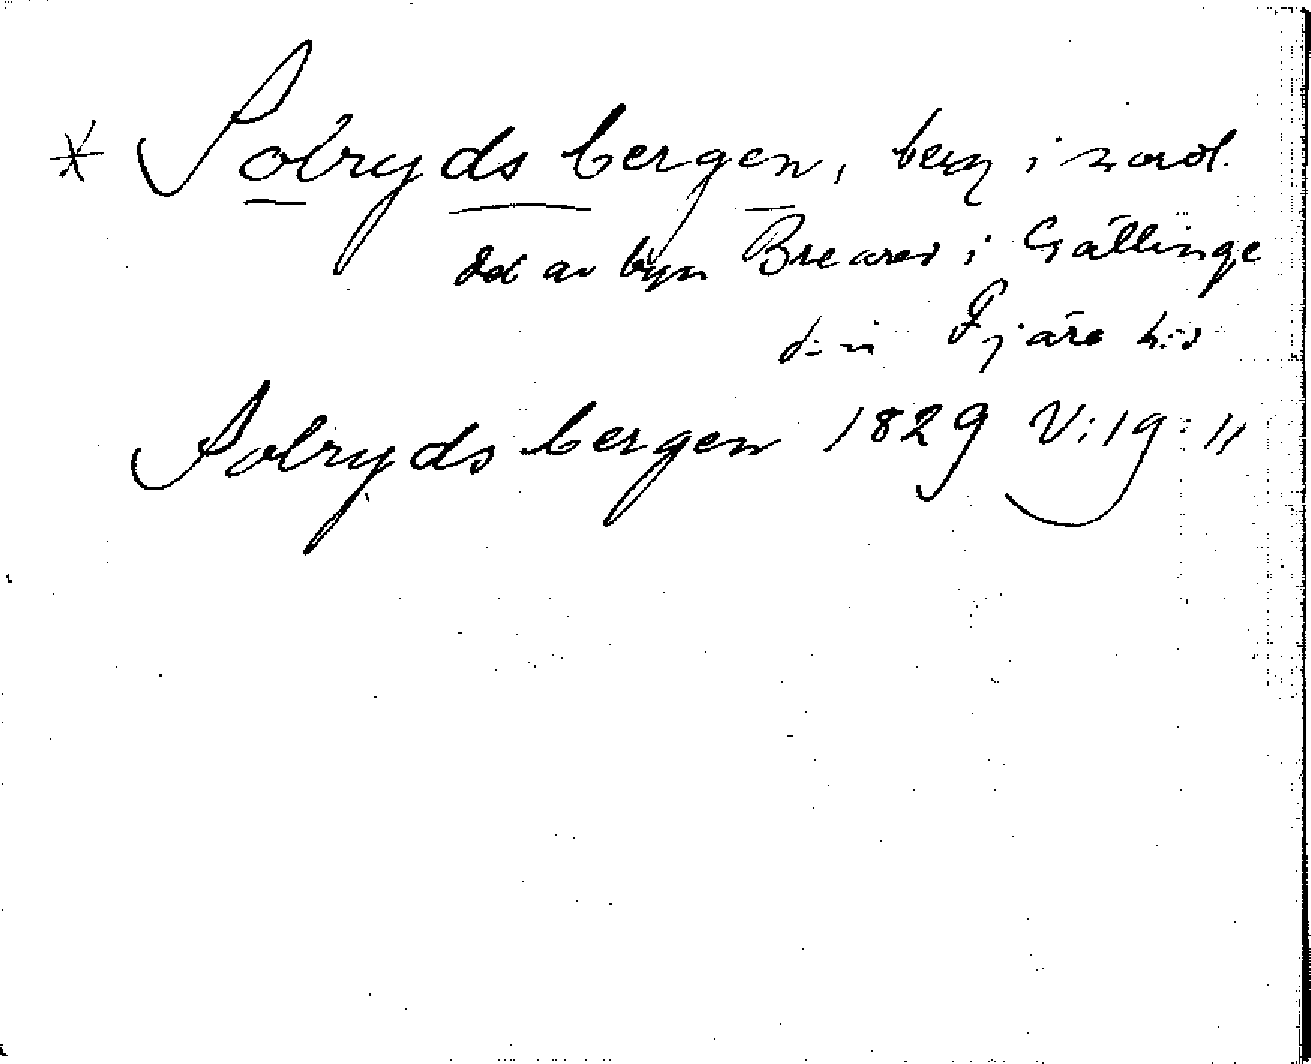 * Solrydsbergen, berg i nordl.
del av byn Breared i Gällinge
sn i Fjäre hd
Solrydsbergen 1829 V:19:11